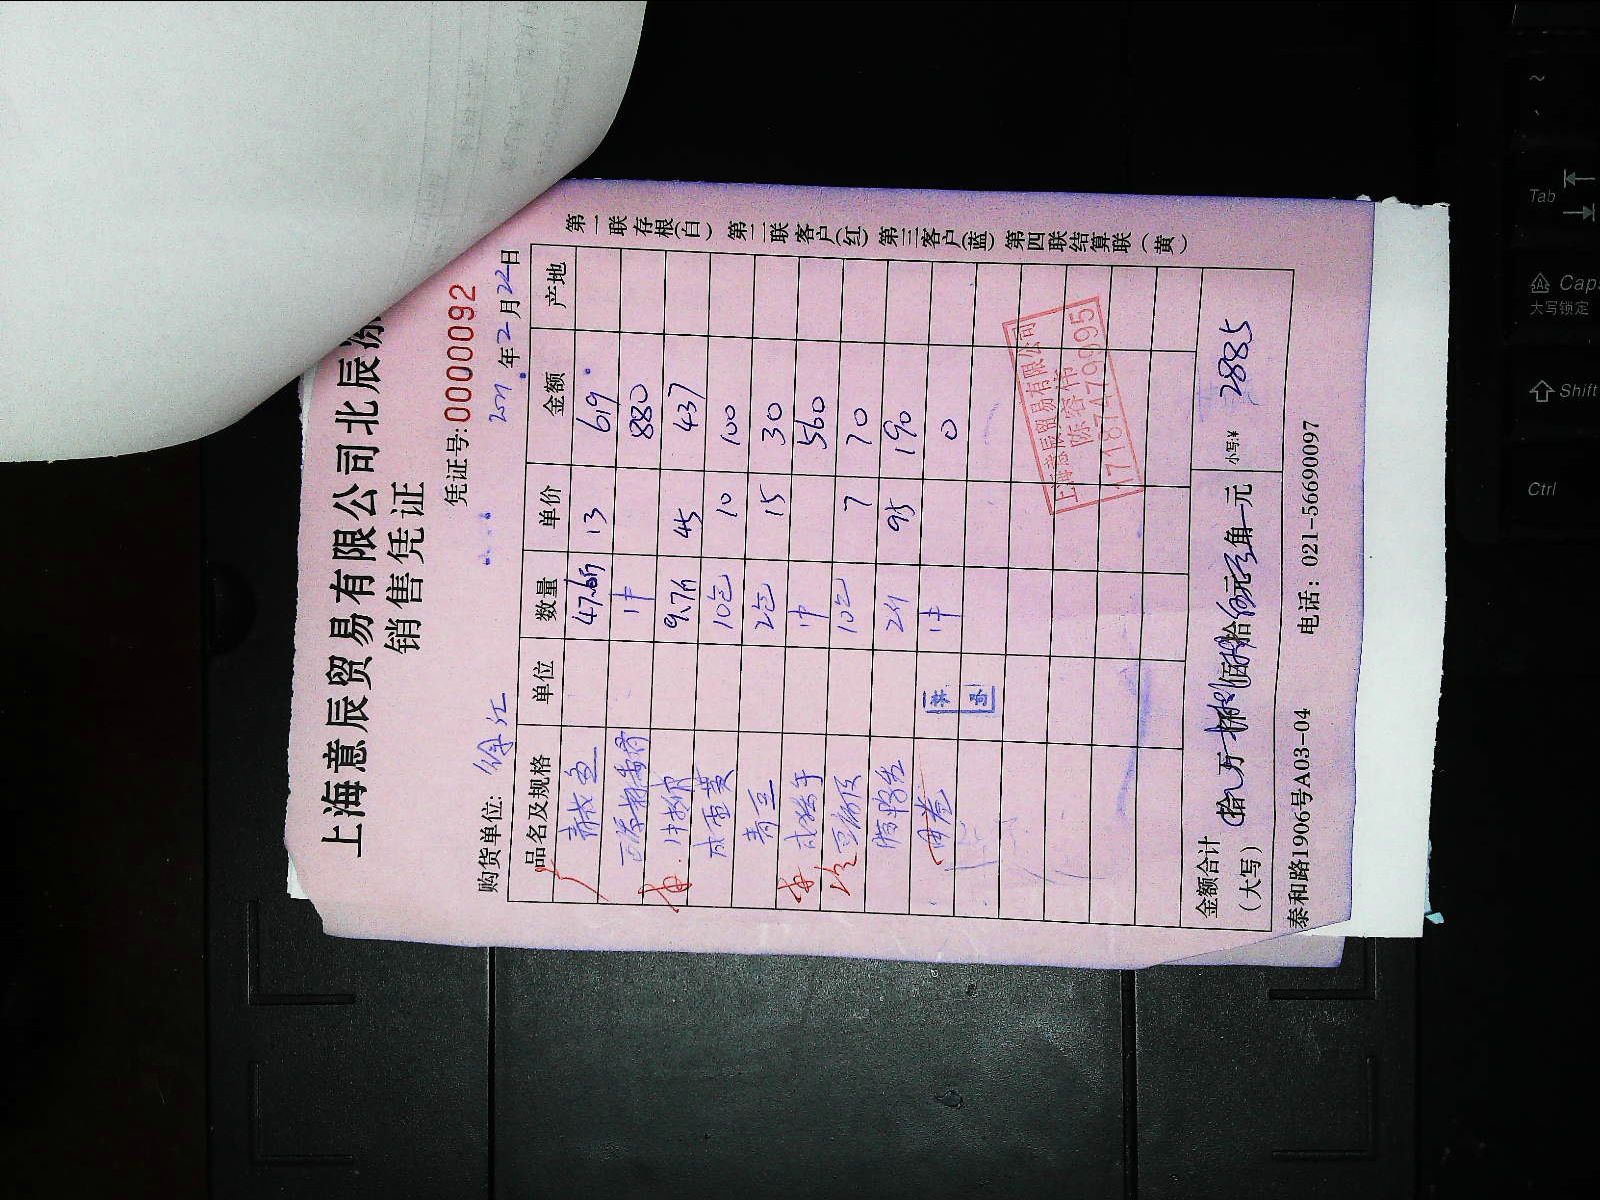 上海意辰贸易有限公司北辰
销售凭证
凭证号:0000092
购货单位: 徐汇 年2月22日
品名及规格 单位 数量 单价 金额 产地
47.6斤 13 619
1件 880
9.7斤 45 437
咸蛋黄 10包 10 100
青豆 2包 15 30
1件 560
豆腐皮 10包 7 70
95 190
1件 0
上海意辰贸易有限公司
陈容伟
17187479995
金额合计
(大写)
拾 万 仟 佰 拾 元 角 元 小写:¥ 2885
泰和路1906号A03-04 电话: 021-56690097
第一联存根(白) 第二联客户(红) 第三客户(蓝) 第四联结算联(黄)
~
Tab
Caps
大写锁定
Shift
Ctrl